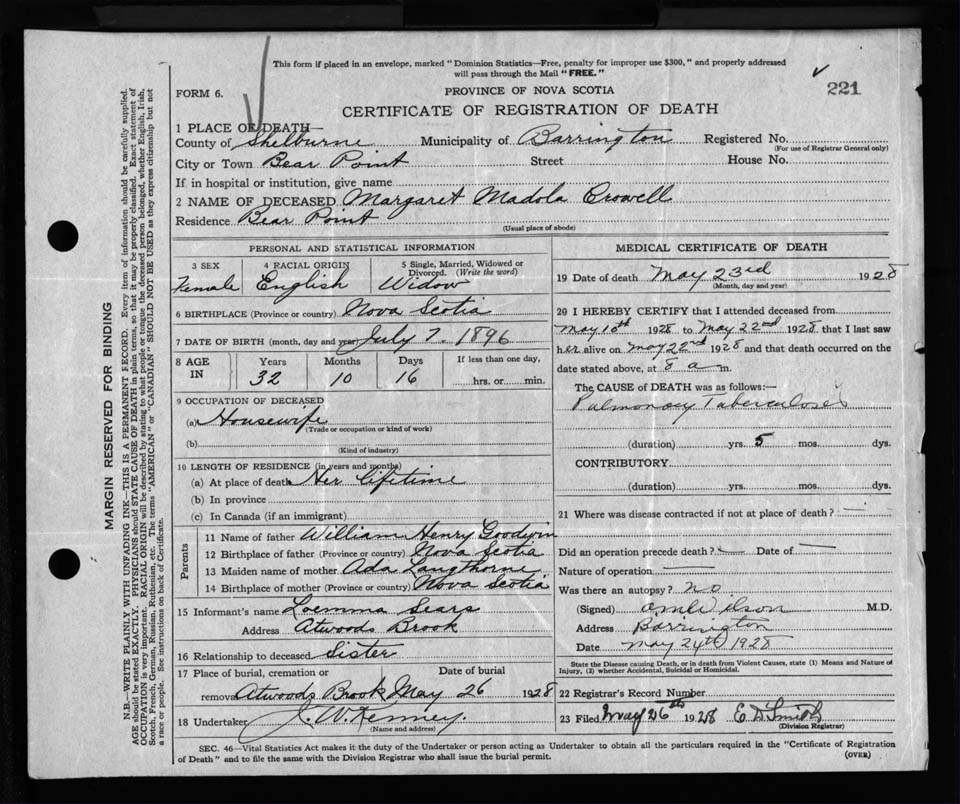 This form if placed in an envelope, marked "Dominion Statistics—Free, penalty for improper use $300," and properly addressed
will pass through the Mail "FREE."
FORM 6.
PROVINCE OF NOVA SCOTIA
221
CERTIFICATE OF REGISTRATION OF DEATH
1 PLACE OF DEATH—
County of Shelburne Municipality of Barrington Registered No.
(For use of Registrar General only)
City or Town Bear Point Street House No.
If in hospital or institution, give name
2 NAME OF DECEASED Margaret Madola Crowell
Residence Bear Point
(Usual place of abode)
PERSONAL AND STATISTICAL INFORMATION
3 SEX 4 RACIAL ORIGIN 5 Single, Married, Widowed or Divorced. (Write the word)
Female English Widow
6 BIRTHPLACE (Province or country) Nova Scotia
7 DATE OF BIRTH (month, day and year) July 7. 1896
8 AGE IN Years Months Days If less than one day,
32 10 16 hrs. or min.
9 OCCUPATION OF DECEASED
(a) Housewife
(Trade or occupation or kind of work)
(b)
(Kind of industry)
10 LENGTH OF RESIDENCE (in years and months)
(a) At place of death Her lifetime
(b) In province
(c) In Canada (if an immigrant)
Parents
11 Name of father William Henry Goodwin
12 Birthplace of father (Province or country) Nova Scotia
13 Maiden name of mother Ada Langthorne
14 Birthplace of mother (Province or country) Nova Scotia
15 Informant's name Loemma Sears
Address Atwoods Brook
16 Relationship to deceased Sister
17 Place of burial, cremation or Date of burial
removal Atwoods Brook May 26 1928
18 Undertaker J. W. Kenney.
(Name and address)
MEDICAL CERTIFICATE OF DEATH
19 Date of death May 23rd 1928
(Month, day and year)
20 I HEREBY CERTIFY that I attended deceased from
May 10th 1928 to May 22nd 1928 that I last saw
her alive on May 22nd 1928 and that death occurred on the
date stated above, at 8 a m.
The CAUSE of DEATH was as follows:—
Pulmonary Tuberculosis
(duration) yrs. 5 mos. dys.
CONTRIBUTORY
(duration) yrs. mos. dys.
21 Where was disease contracted if not at place of death? —
Did an operation precede death? — Date of —
Nature of operation —
Was there an autopsy? no
(Signed) Wilson M.D.
Address Barrington
Date May 24th 1928
State the Disease causing Death, or in death from Violent Causes, state (1) Means and Nature of
Injury, (2) whether Accidental, Suicidal or Homicidal.
22 Registrar's Record Number
23 Filed May 26th 1928 E D Smith
(Division Registrar)
SEC. 46—Vital Statistics Act makes it the duty of the Undertaker or person acting as Undertaker to obtain all the particulars required in the "Certificate of Registration
of Death" and to file the same with the Division Registrar who shall issue the burial permit.
(OVER)
MARGIN RESERVED FOR BINDING
N.B.—WRITE PLAINLY WITH UNFADING INK—THIS IS A PERMANENT RECORD. Every item of information should be carefully supplied.
AGE should be stated EXACTLY. PHYSICIANS should STATE CAUSE OF DEATH in plain terms, so that it may be properly classified. Exact statement of
OCCUPATION is very important. RACIAL ORIGIN will be described by stating to what people or tongue the deceased person belonged, whether English, Irish,
Scotch, French, German, Russian, Ruthenian, etc. The terms "AMERICAN" or "CANADIAN" SHOULD NOT BE USED as they express citizenship but not
a race or people. See instructions on back of Certificate.